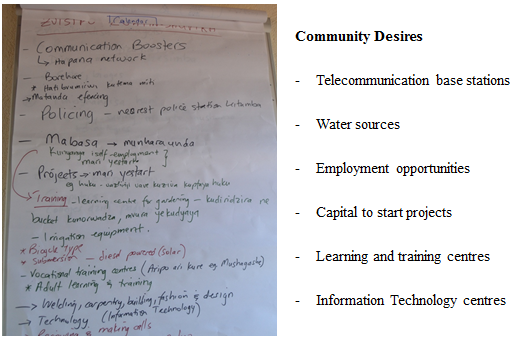 - Communication Boosters
↳ Hapana network
- Borehole
* Hatibvumirwi kutema miti
→ Matanda efencing
- Policing - nearest police station
- Mabasa → munharaunda
Kushanya self-employment
mari yestart
- Projects → mari yestart
eg huku - vazhinji vave kuziva kupfuya huku
→ Training - learning centre for gardening - kudiridzira ne
bucket kunorwadza, mvura yekudyayo
- Irrigation equipment.
* Bicycle type
* Submersion - diesel powered (solar)
- Vocational training centres (Aripo ari kure eg Mushagashe)
* Adult learning & training
→ Welding, carpentry, building, fashion & design
→ Technology (Information Technology)
making calls
Community Desires
- Telecommunication base stations
- Water sources
- Employment opportunities
- Capital to start projects
- Learning and training centres
- Information Technology centres